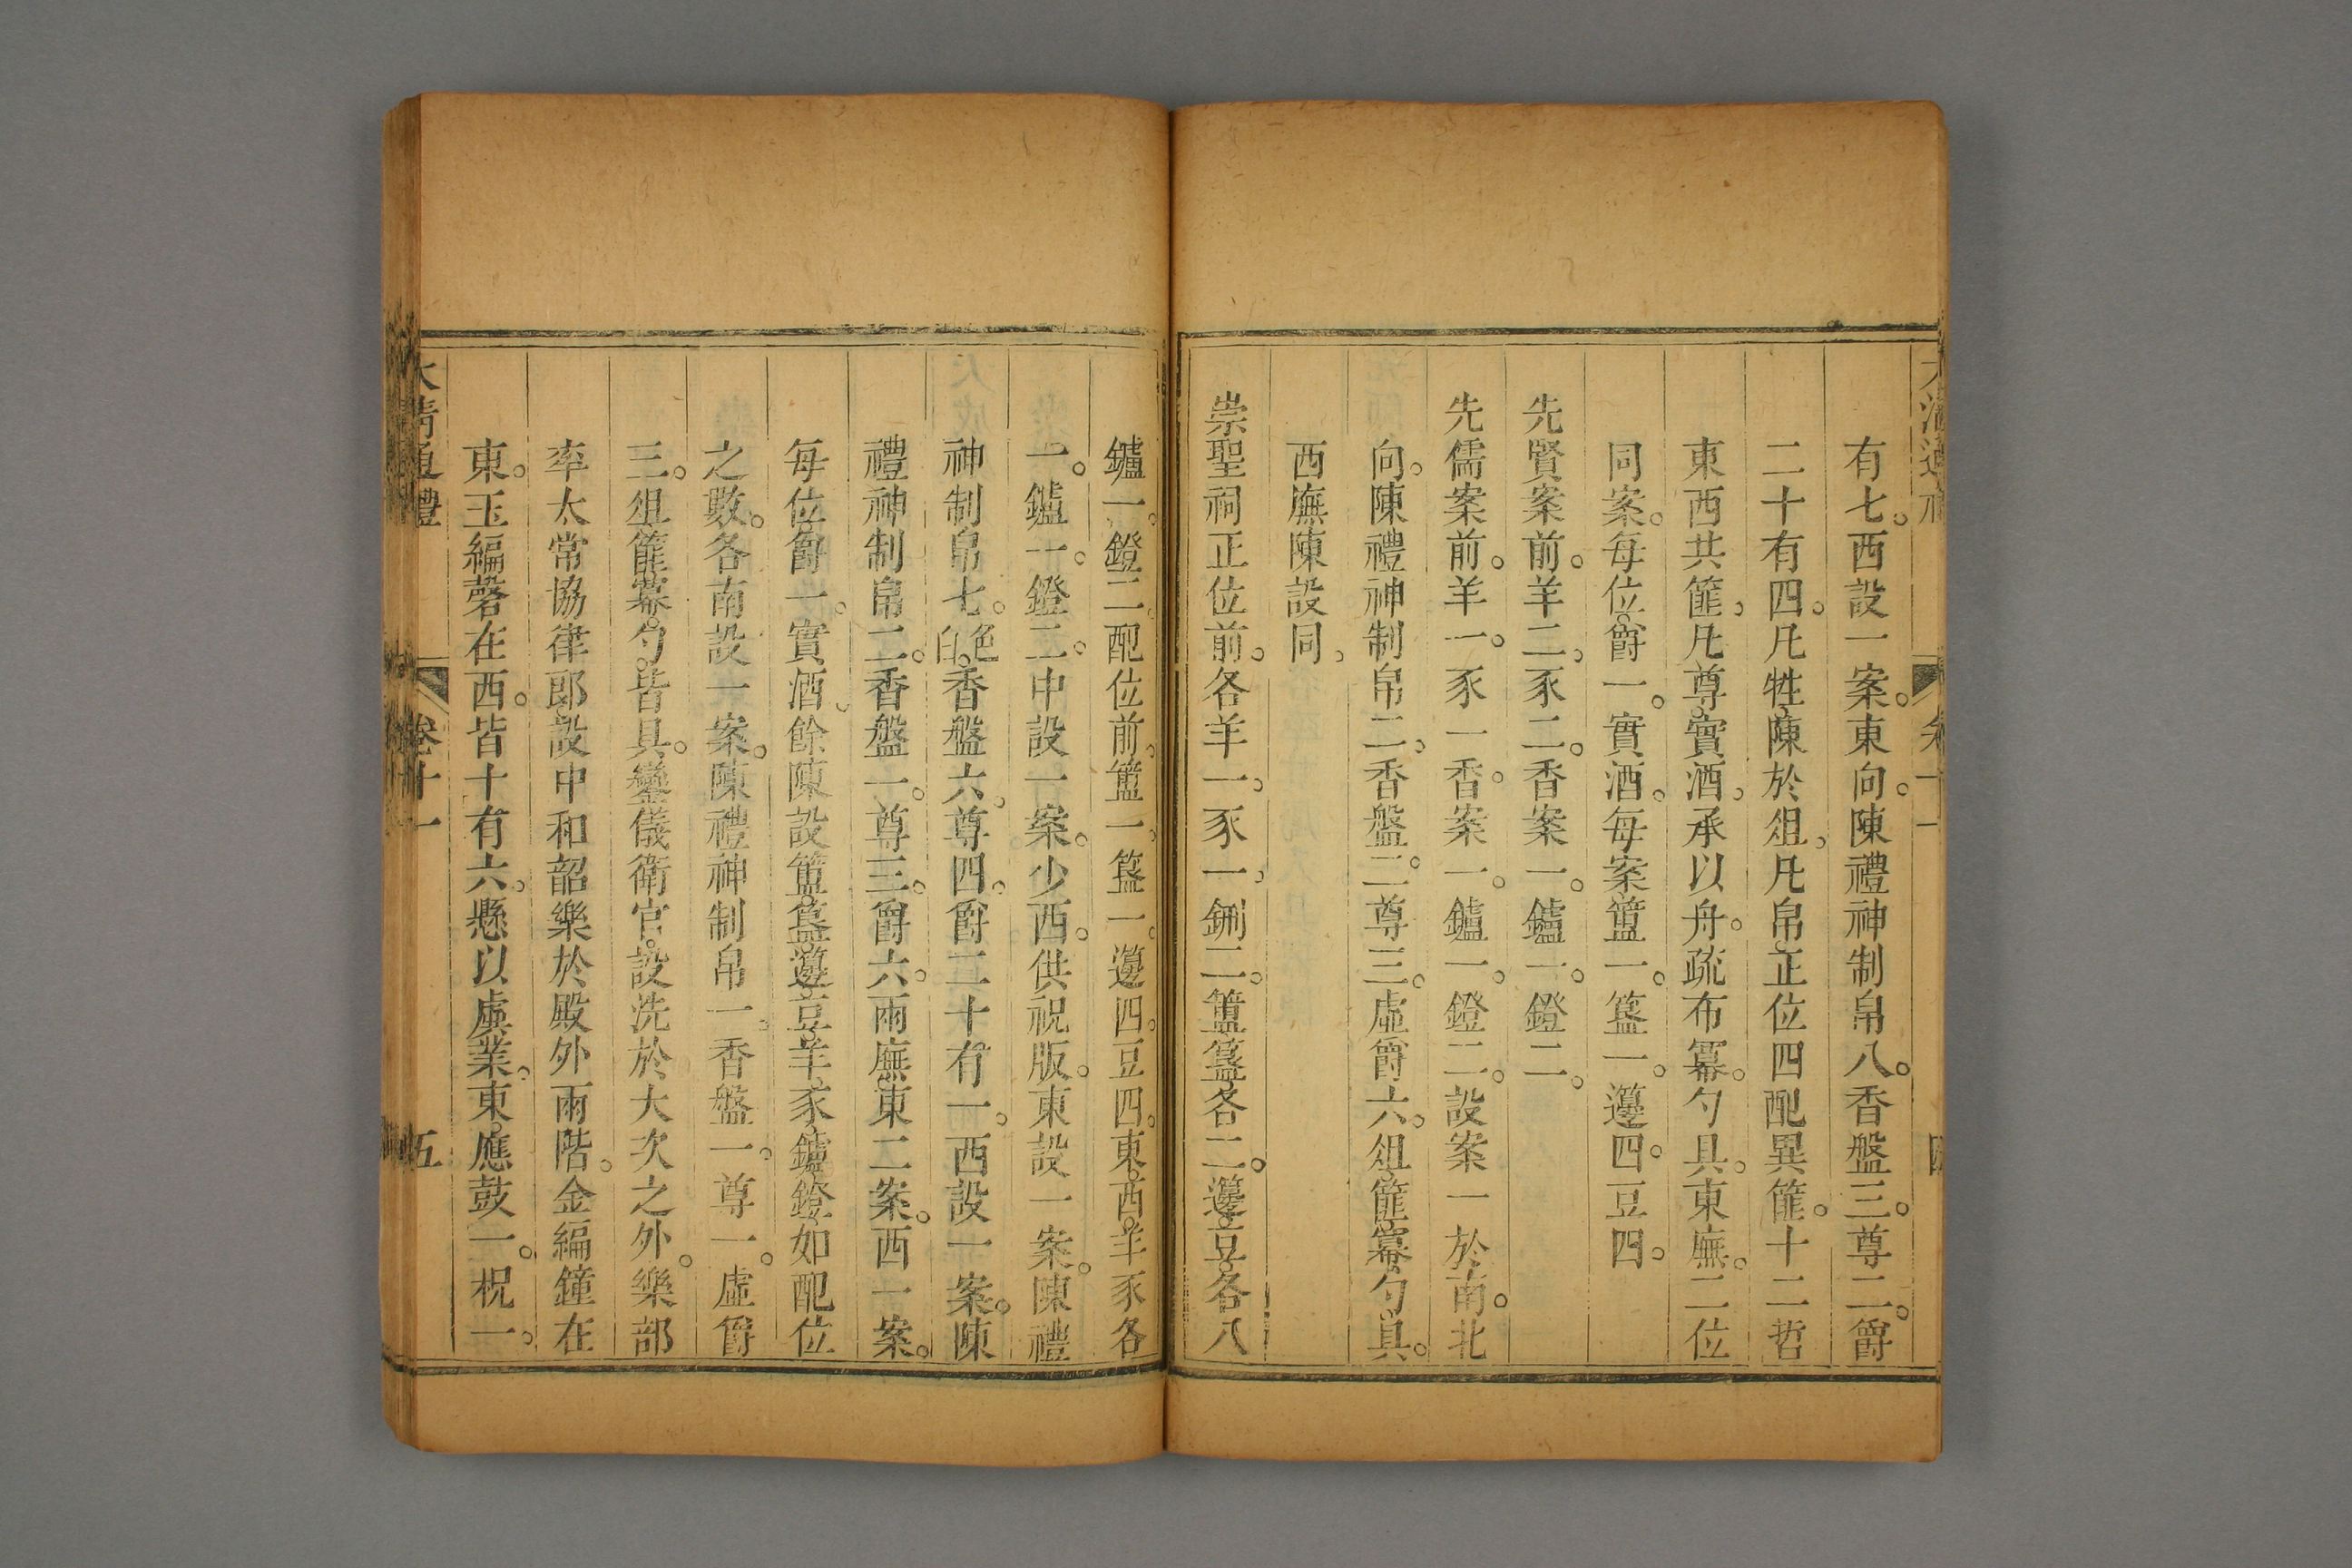 有七。西設一案。東向。陳禮神制帛八。香盤三。尊二。爵
二十有四。凡牲。陳於俎。凡帛。正位四配異篚。十二哲
東西共篚。凡尊。實酒。承以舟。疏布冪。勺具。東廡。二位
同案。每位。爵一。實酒。每案簠一。簋一。籩四。豆四。
先賢案前。羊二。豕二。香案一。鑪一。鐙二。
先儒案前。羊一。豕一。香案一。鑪一。鐙二。設案一於南。北
向。陳禮神制帛二。香盤二。尊三。虛爵六。俎。篚。冪。勺。具。
西廡陳設同。
崇聖祠正位前。各羊一。豕一。鉶二。簠。簋。各二。籩。豆。各八
鑪一。鐙二。配位前。簠一。簋一。籩四。豆四。東。西。羊豕各
一。鑪一。鐙二。中設一案。少西。供祝版。東設一案。陳禮
神制帛七。色白。香盤六。尊四。爵二十有一。西設一案。陳
禮神制帛二。香盤一。尊三。爵六。兩廡。東二案。西一案。
每位。爵一。實酒。餘陳設簠。簋。籩。豆。羊。豕。鑪。鐙。如配位
之數。各南設一案。陳禮神制帛一。香盤一。尊一。虛爵
三。俎。篚。冪。勺。皆具。鑾儀衛官。設洗於大次之外。樂部
率太常協律郎。設中和韶樂於殿外兩階。金編鐘在
東。玉編磬在西。皆十有六。懸以虡業。東。應鼓一。柷一。
大清通禮 卷十一 五